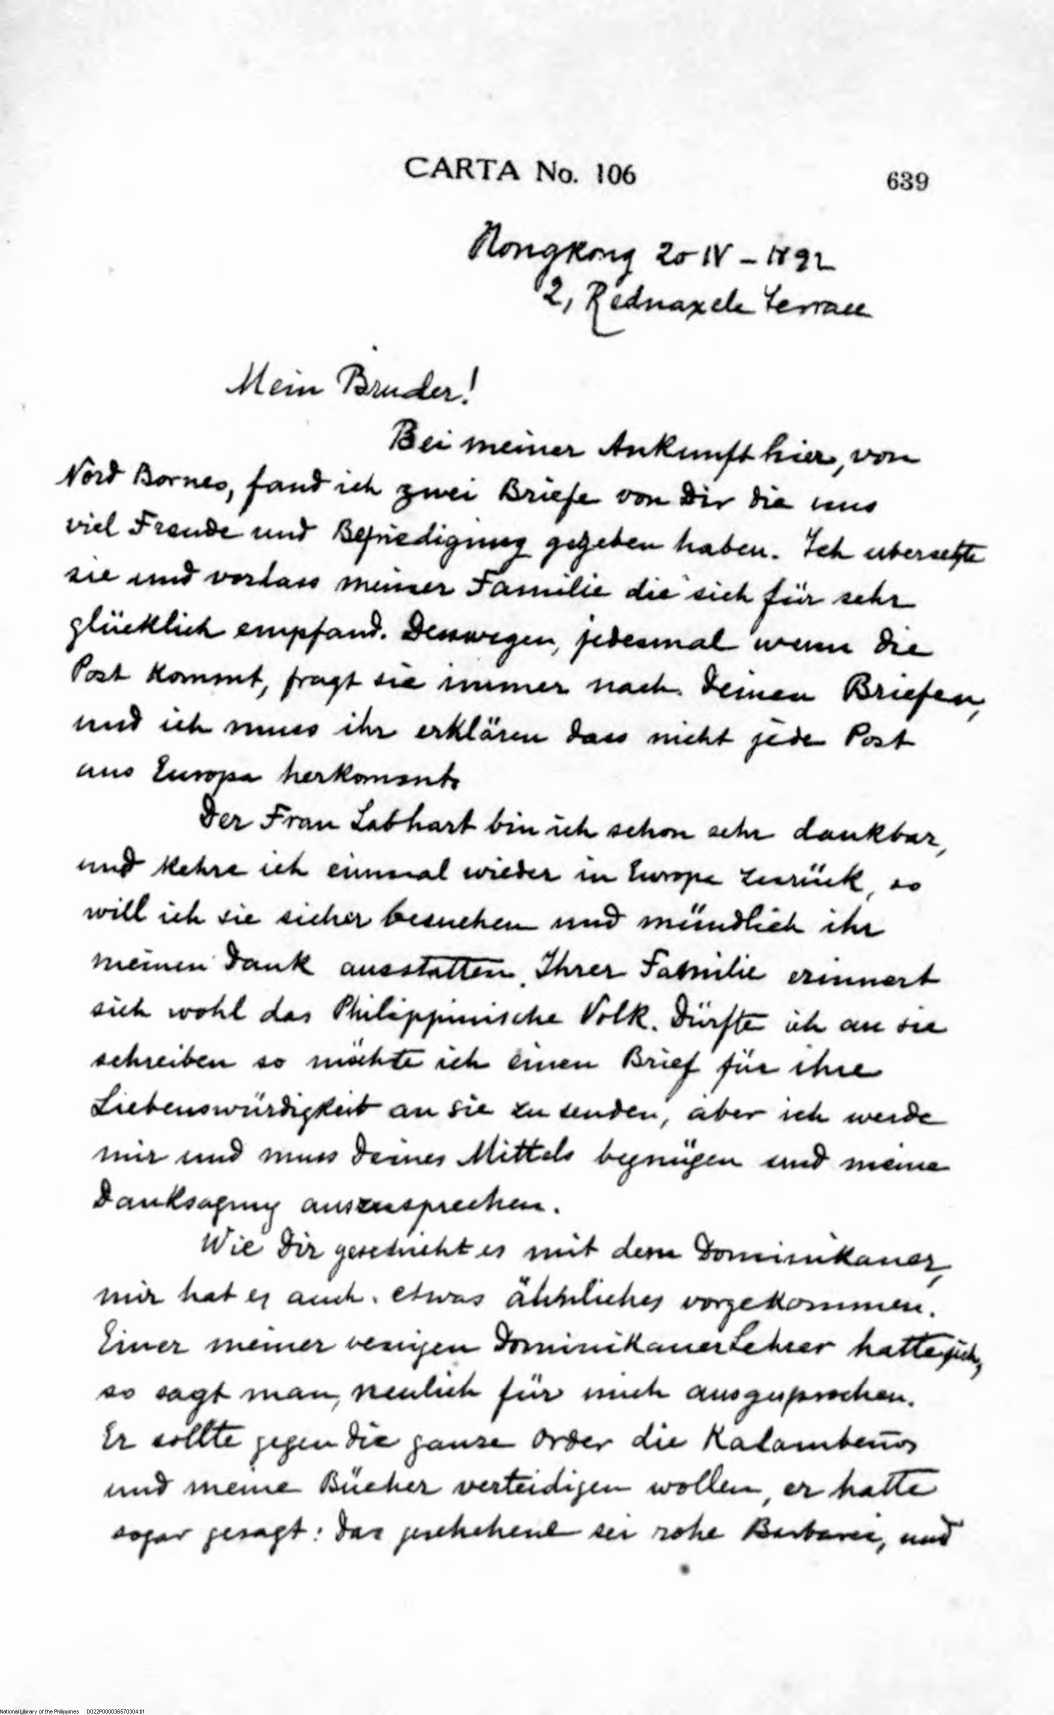 CARTA No. 106
639
Hongkong 20 IV – 1892
2, Rednaxela Terrace
Mein Bruder!
Bei meiner Ankunft hier, von
Nord Borneo, fand ich zwei Briefe von Dir die uns
viel Freude und Befriedigung gegeben haben. Ich ubersetzte
sie und vorlass meiner Familie die sich für sehr
glücklich empfand. Desswegen, jedesmal wenn die
Post kommt, fragt sie immer nach Deinen Briefen,
und ich muss ihr erklären dass nicht jede Post
aus Europa herkommt.
Der Frau Labhart bin ich schon sehr dankbar,
und kehre ich einmal wieder in Europe zurück, so
will ich sie sicher besuchen und mündlich ihr
meinen Dank ausstatten. Ihrer Familie erinnert
sich wohl das Philippinische Volk. Dürfte ich an sie
schreiben so möchte ich einen Brief für ihre
Liebenswürdigkeit an sie zu senden, aber ich werde
mir und muss Deines Mittels begnügen und meine
Danksagung auszusprechen.
Wie Dir geschieht es mit dem Dominikaner,
mir hat es auch etwas ähnliches vorgekommen.
Einer meiner wenigen Dominikaner Lehrer hatte sich,
so sagt man, neulich für mich ausgesprochen.
Er sollte gegen die ganze Order die Kalambeños
und meine Bücher verteidigen wollen, er hatte
sogar gesagt: das geschehene sei rohe Barbarei, und
National Library of the Philippines